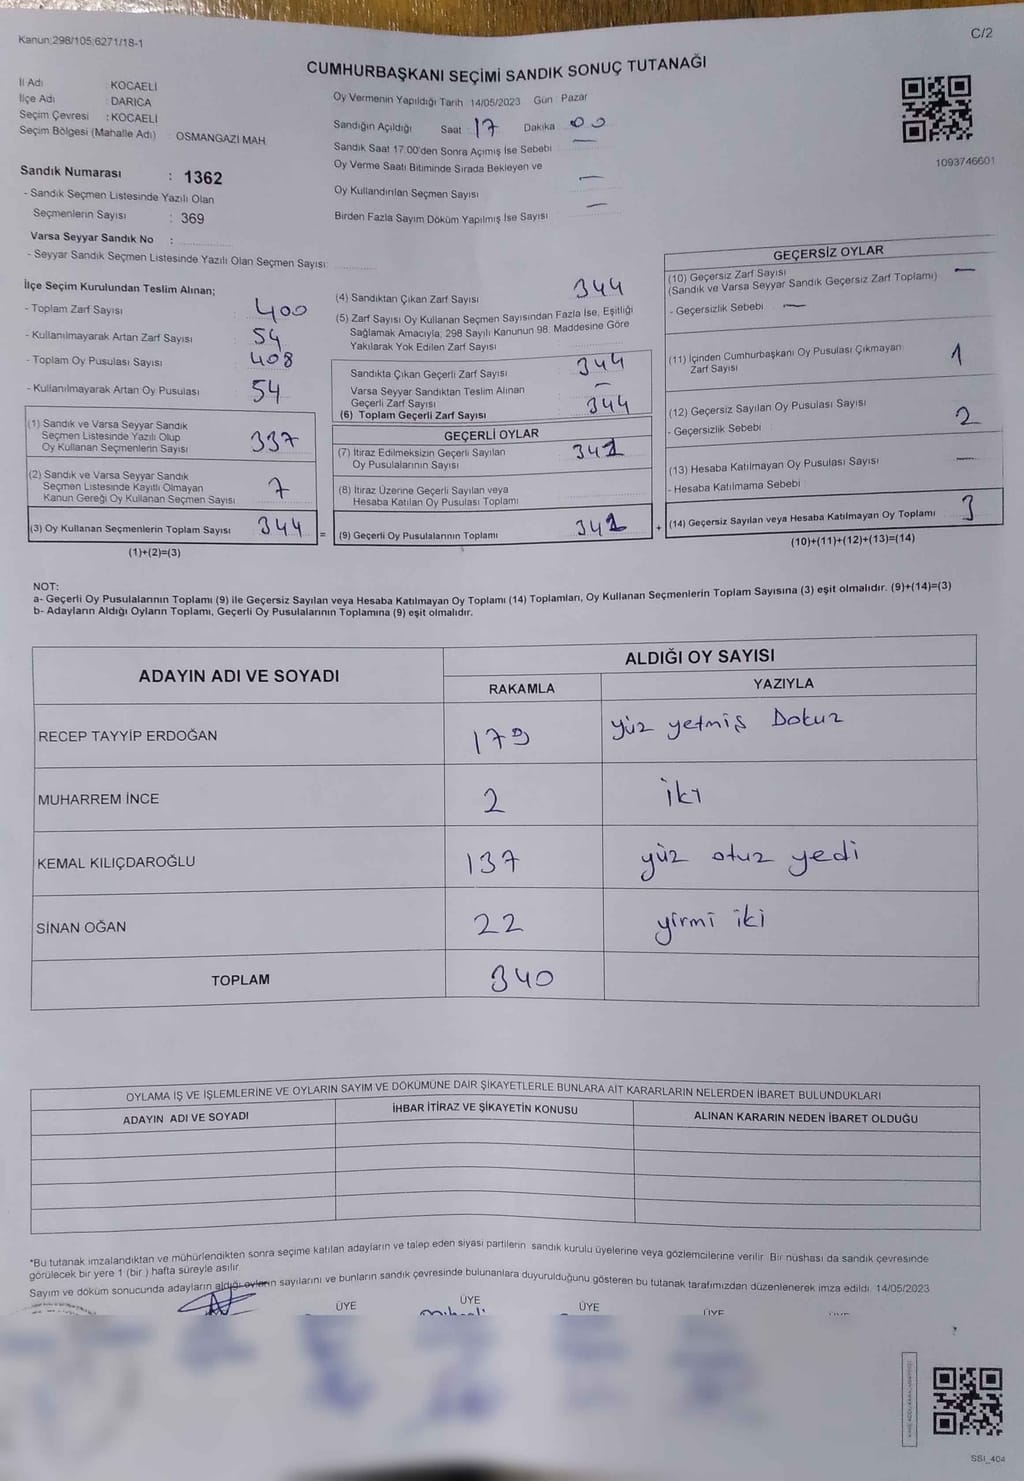 Kanun:298/105;6271/18-1
C/2
CUMHURBAŞKANI SEÇİMİ SANDIK SONUÇ TUTANAĞI
İl Adı : KOCAELİ
İlçe Adı : DARICA
Seçim Çevresi : KOCAELİ
Seçim Bölgesi (Mahalle Adı) : OSMANGAZİ MAH.
Oy Vermenin Yapıldığı Tarih 14/05/2023 Gün Pazar
Sandığın Açıldığı Saat 17 Dakika 00
Sandık Saat 17:00'den Sonra Açımış İse Sebebi —
Oy Verme Saati Bitiminde Sırada Bekleyen ve
Oy Kullandırılan Seçmen Sayısı —
Birden Fazla Sayım Döküm Yapılmış İse Sayısı —
1093746601
Sandık Numarası : 1362
- Sandık Seçmen Listesinde Yazılı Olan
Seçmenlerin Sayısı : 369
Varsa Seyyar Sandık No :
- Seyyar Sandık Seçmen Listesinde Yazılı Olan Seçmen Sayısı:
İlçe Seçim Kurulundan Teslim Alınan;
- Toplam Zarf Sayısı : 400
- Kullanılmayarak Artan Zarf Sayısı : 54
- Toplam Oy Pusulası Sayısı : 408
- Kullanılmayarak Artan Oy Pusulası : 54
(1) Sandık ve Varsa Seyyar Sandık
Seçmen Listesinde Yazılı Olup
Oy Kullanan Seçmenlerin Sayısı 337
(2) Sandık ve Varsa Seyyar Sandık
Seçmen Listesinde Kayıtlı Olmayan
Kanun Gereği Oy Kullanan Seçmen Sayısı 7
(3) Oy Kullanan Seçmenlerin Toplam Sayısı 344 =
(1)+(2)=(3)
(4) Sandıktan Çıkan Zarf Sayısı 344
(5) Zarf Sayısı Oy Kullanan Seçmen Sayısından Fazla İse, Eşitliği
Sağlamak Amacıyla; 298 Sayılı Kanunun 98. Maddesine Göre
Yakılarak Yok Edilen Zarf Sayısı
Sandıkta Çıkan Geçerli Zarf Sayısı 344
Varsa Seyyar Sandıktan Teslim Alınan
Geçerli Zarf Sayısı —
(6) Toplam Geçerli Zarf Sayısı 344
GEÇERLİ OYLAR
(7) İtiraz Edilmeksizin Geçerli Sayılan
Oy Pusulalarının Sayısı 341
(8) İtiraz Üzerine Geçerli Sayılan veya
Hesaba Katılan Oy Pusulası Toplamı
(9) Geçerli Oy Pusulalarının Toplamı 341 +
GEÇERSİZ OYLAR
(10) Geçersiz Zarf Sayısı —
(Sandık ve Varsa Seyyar Sandık Geçersiz Zarf Toplamı)
- Geçersizlik Sebebi —
(11) İçinden Cumhurbaşkanı Oy Pusulası Çıkmayan
Zarf Sayısı 1
(12) Geçersiz Sayılan Oy Pusulası Sayısı 2
- Geçersizlik Sebebi
(13) Hesaba Katılmayan Oy Pusulası Sayısı —
- Hesaba Katılmama Sebebi
(14) Geçersiz Sayılan veya Hesaba Katılmayan Oy Toplamı 3
(10)+(11)+(12)+(13)=(14)
NOT:
a- Geçerli Oy Pusulalarının Toplamı (9) ile Geçersiz Sayılan veya Hesaba Katılmayan Oy Toplamı (14) Toplamları, Oy Kullanan Seçmenlerin Toplam Sayısına (3) eşit olmalıdır. (9)+(14)=(3)
b- Adayların Aldığı Oyların Toplamı, Geçerli Oy Pusulalarının Toplamına (9) eşit olmalıdır.
ADAYIN ADI VE SOYADI
ALDIĞI OY SAYISI
RAKAMLA YAZIYLA
RECEP TAYYİP ERDOĞAN 179 yüz yetmiş Dokuz
MUHARREM İNCE 2 iki
KEMAL KILIÇDAROĞLU 137 yüz otuz yedi
SİNAN OĞAN 22 yirmi iki
TOPLAM 340
OYLAMA İŞ VE İŞLEMLERİNE VE OYLARIN SAYIM VE DÖKÜMÜNE DAİR ŞİKAYETLERLE BUNLARA AİT KARARLARIN NELERDEN İBARET BULUNDUKLARI
ADAYIN ADI VE SOYADI İHBAR İTİRAZ VE ŞİKAYETİN KONUSU ALINAN KARARIN NEDEN İBARET OLDUĞU
*Bu tutanak imzalandıktan ve mühürlendikten sonra seçime katılan adayların ve talep eden siyasi partilerin sandık kurulu üyelerine veya gözlemcilerine verilir. Bir nüshası da sandık çevresinde
görülecek bir yere 1 (bir ) hafta süreyle asılır.
Sayım ve döküm sonucunda adayların aldığı oyların sayılarını ve bunların sandık çevresinde bulunanlara duyurulduğunu gösteren bu tutanak tarafımızdan düzenlenerek imza edildi. 14/05/2023
ÜYE ÜYE ÜYE ÜYE
SSI_404